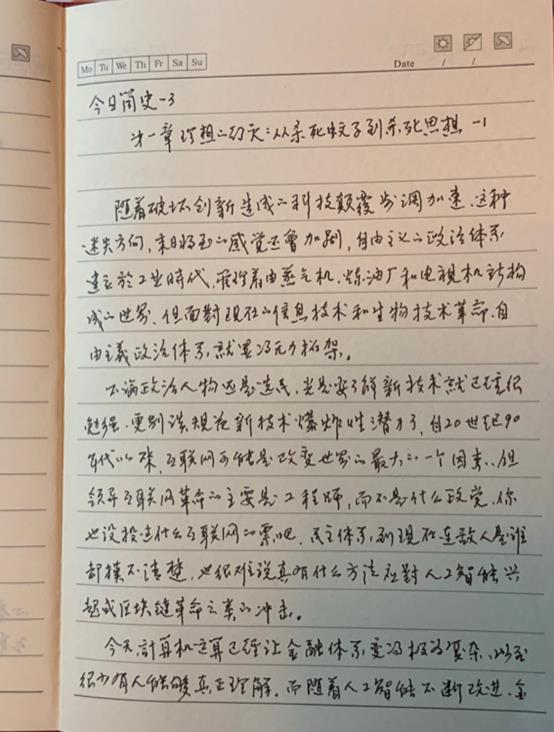 Mo Tu We Th Fr Sa Su
Date / /
今日简史-3
第一章 理想的幻灭:从杀死蚊子到杀死思想 -1
随着破坏创新造成的科技颠覆步调加速,这种
迷失方向,末日将至的感觉还會加剧,自由主义的政治体系
建立於工业時代,管理着由蒸气机、炼油厂和电視机所构
成的世界,但面對现在的信息技术和生物技术革命,自
由主義政治体系就显得无力招架。
不論政治人物还是选民,光是要了解新技术就已经很
勉强,更别说规范新技术爆炸性潜力了,自20世纪90
年代以来,互联网可能是改变世界的最大的一个因素,但
领导互联网革命的主要是工程师,而不是什么政党,你
也没投过什么互联网的票吧,民主体系到现在连敌人是谁
都摸不清楚,也很难说真有什么方法应對人工智能兴
起或区块鏈革命之类的冲击。
今天,計算机运算已经让金融体系变得极为复杂,以至
很少有人能够真正理解,而随着人工智能不断改进,金